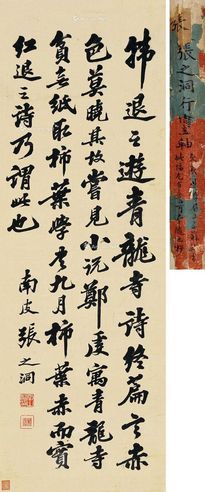 韩退之游青龍寺詩終篇言赤
色莫曉其故嘗見小説鄭虔寓青龍寺
貧無紙取柿葉學書九月柿葉赤而實
紅退之詩乃謂此也
南皮張之洞
張 張之洞行書軸